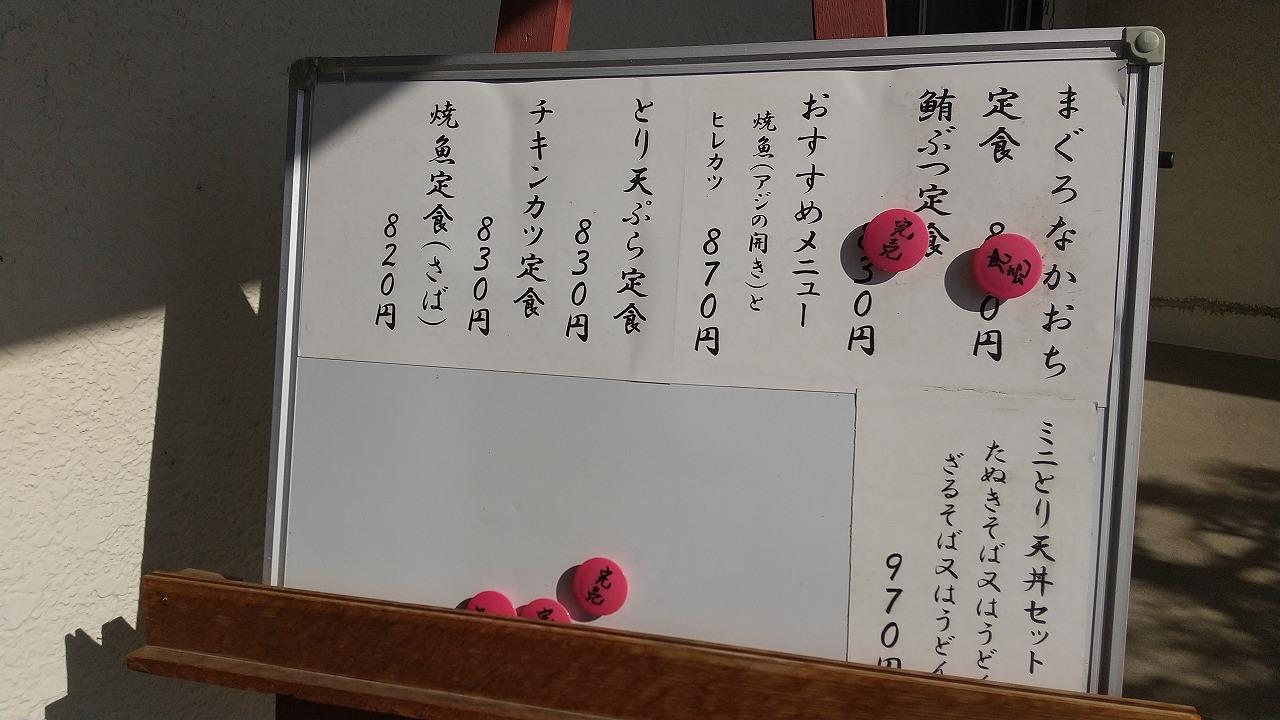 まぐろなかおち
定食
8 0円
鮪ぶつ定食
830円
おすすめメニュー
焼魚(アジの開き)と
ヒレカツ 870円
とり天ぷら定食
830円
チキンカツ定食
830円
焼魚定食(さば)
820円
ミニとり天丼セット
たぬきそば又はうどん
ざるそば又はうどん
970円
完売
完売
完売